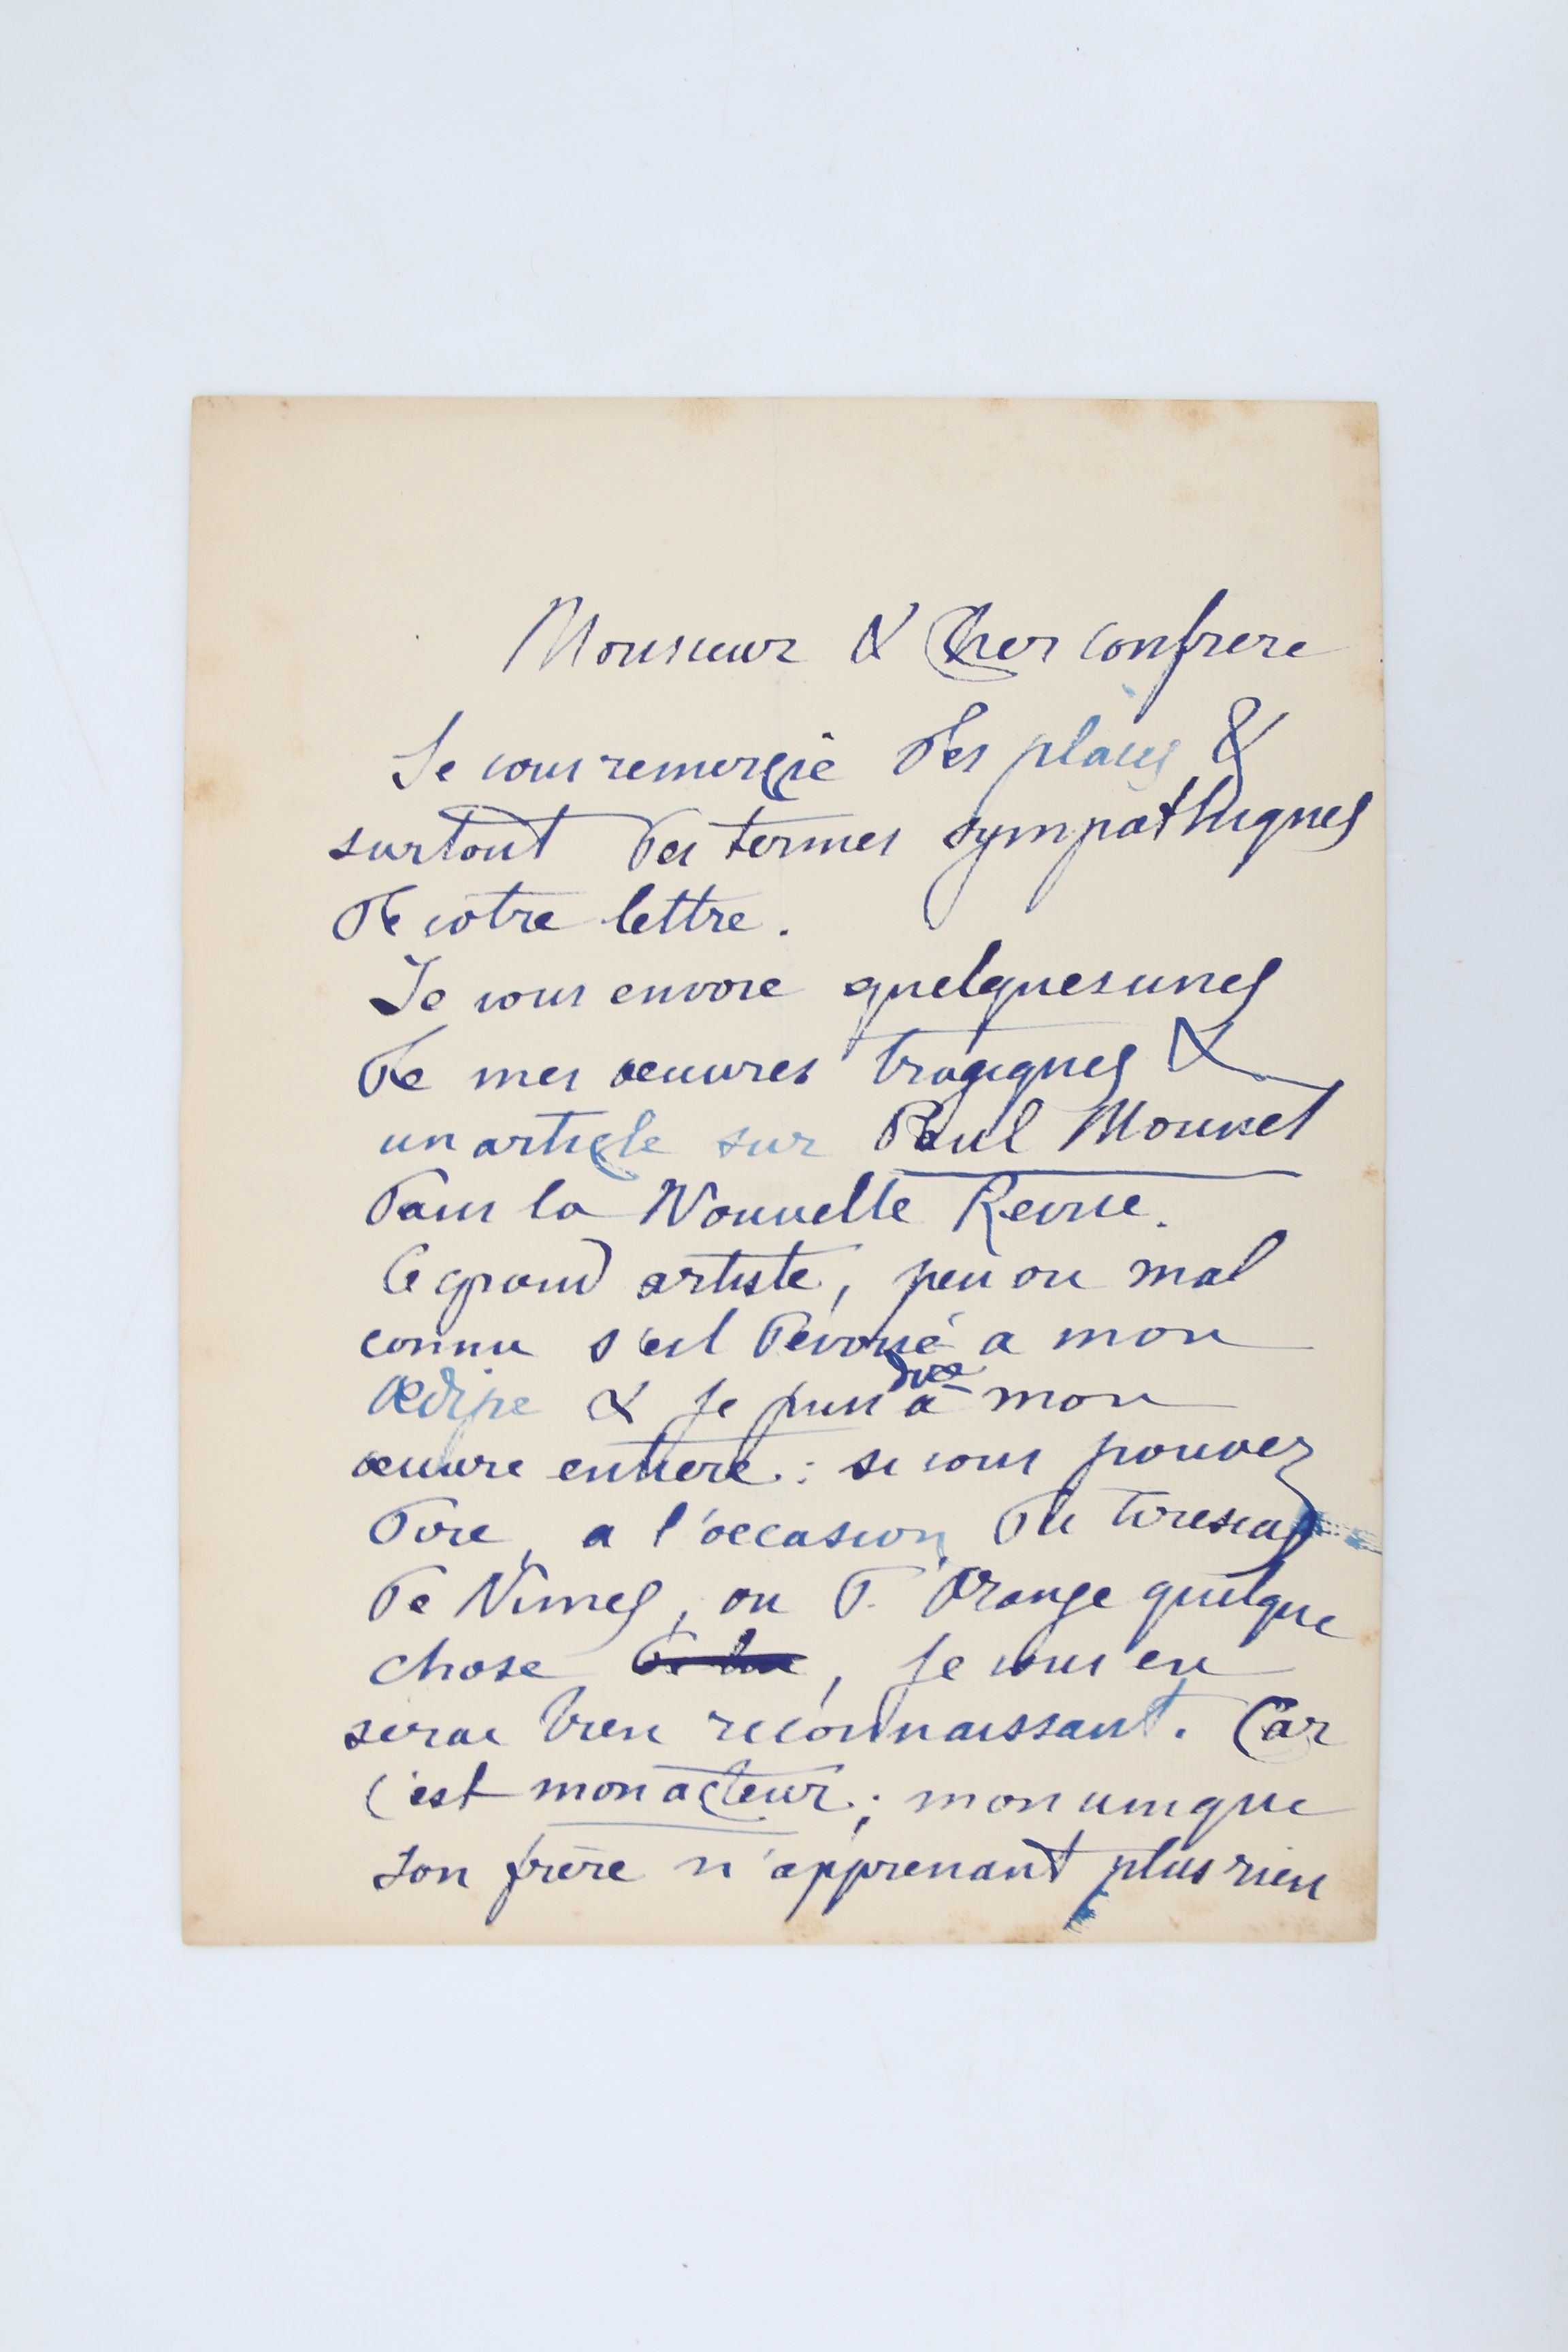 Monsieur & Cher confrere
Je vous remercie des places &
surtout des termes sympathiques
de votre lettre.
Je vous envoie quelques unes
de mes œuvres tragiques &
un article sur Paul Mounet
dans la Nouvelle Revue.
Ce grand artiste, peu ou mal
connu s'est dévoué a mon
Œdipe & je puis dire à mon
œuvre entiere : si vous pouvez
dire, a l'occasion du Tiresias
de Nimes, ou d'Orange quelque
chose de lui, je vous en
serai bien reconnaissant. Car
c'est mon acteur ; mon unique
son frère n'apprenant plus rien